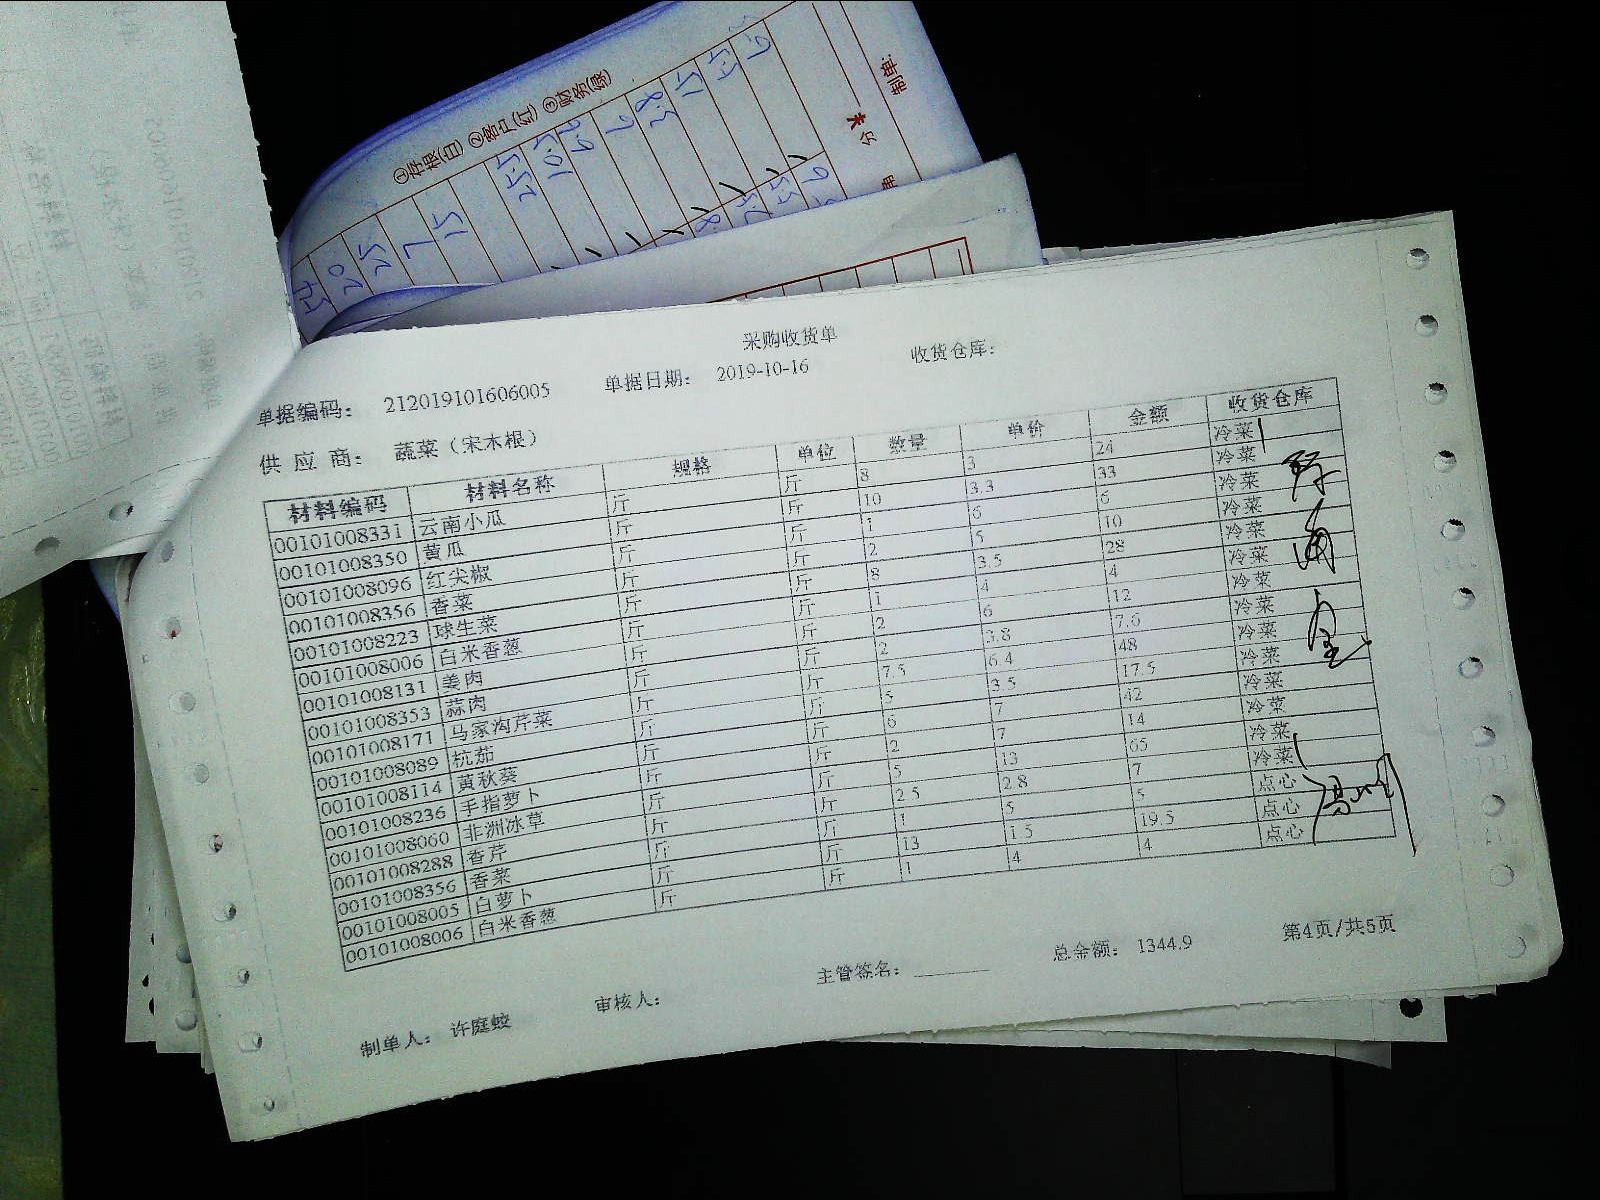 ①存根(白) ②客户(红) ③财务(绿)
制单:
采购收货单
单据编码： 212019101606005 单据日期： 2019-10-16 收货仓库：
供 应 商： 蔬菜（宋木根）
材料编码 材料名称 规格 单位 数量 单价 金额 收货仓库
00101008331 云南小瓜 斤 斤 8 3 24 冷菜
00101008350 黄瓜 斤 斤 10 3.3 33 冷菜
00101008096 红尖椒 斤 斤 1 6 6 冷菜
00101008356 香菜 斤 斤 2 5 10 冷菜
00101008223 球生菜 斤 斤 8 3.5 28 冷菜
00101008006 白米香葱 斤 斤 1 4 4 冷菜
00101008131 姜肉 斤 斤 2 6 12 冷菜
00101008353 蒜肉 斤 斤 2 3.8 7.6 冷菜
00101008171 马家沟芹菜 斤 斤 7.5 6.4 48 冷菜
00101008089 杭茄 斤 斤 5 3.5 17.5 冷菜
00101008114 黄秋葵 斤 斤 6 7 42 冷菜
00101008236 手指萝卜 斤 斤 2 7 14 冷菜
00101008060 非洲冰草 斤 斤 5 13 65 冷菜
00101008288 香芹 斤 斤 2.5 2.8 7 冷菜
00101008356 香菜 斤 斤 1 5 5 点心
00101008005 白萝卜 斤 斤 13 1.5 19.5 点心
00101008006 白米香葱 斤 斤 1 4 4 点心
制单人： 许庭蛟 审核人： 主管签名： 总金额： 1344.9 第4页/共5页